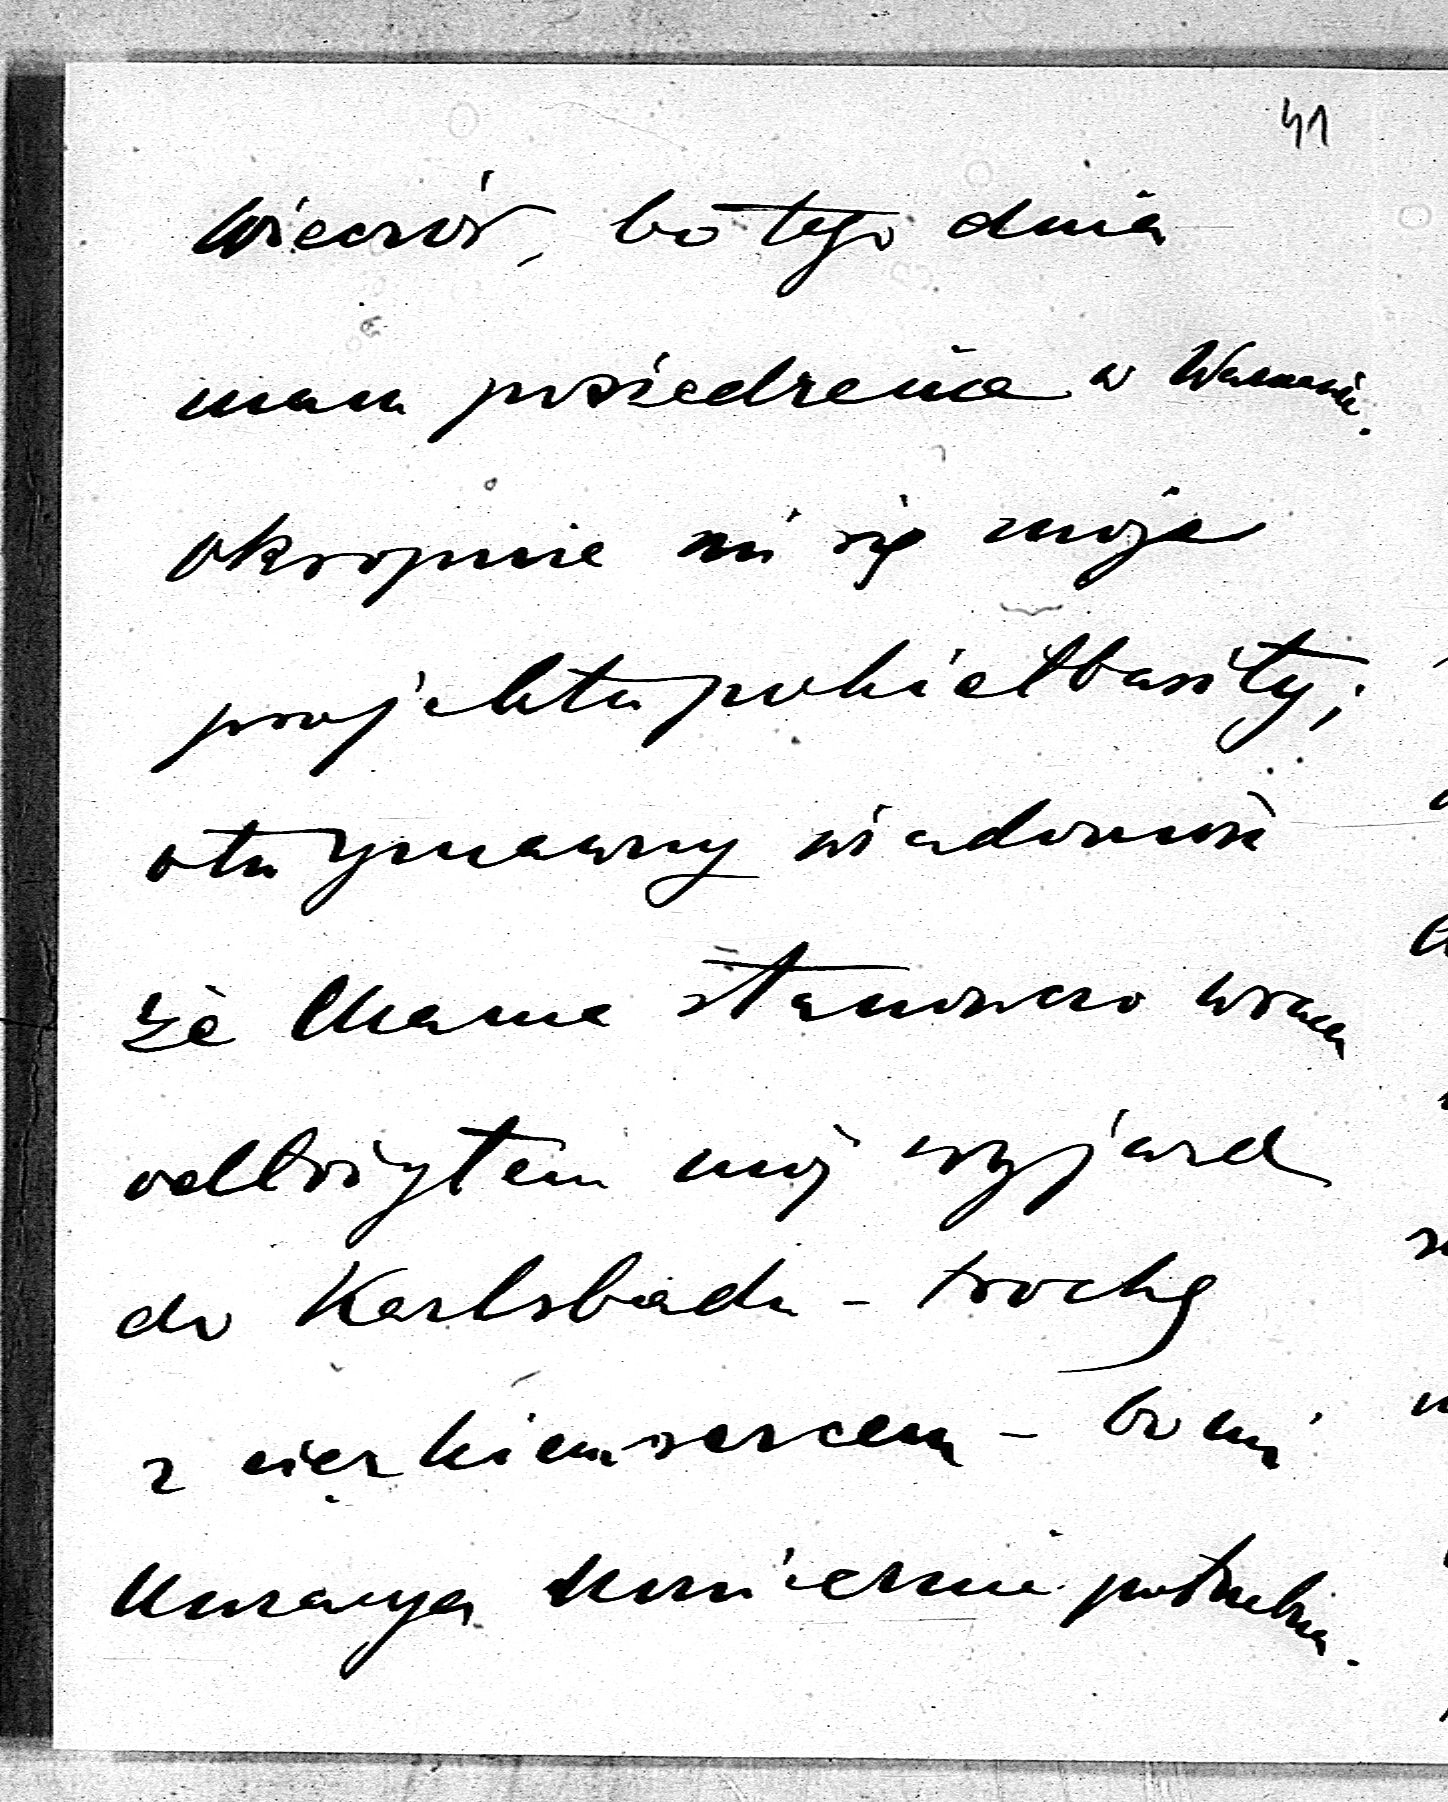 41
wieczór, bo tego dnia
mam posiedzenie w Warszawie.
okropnie mi się moje
projekta pokiełbasiły;
otrzymawszy wiadomość
że Mama stanowczo wraca
odłożyłem mój wyjazd
do Karlsbadu – trochę
z ciężkiem sercem – bo mi
Kuracya koniecznie potrzebna.